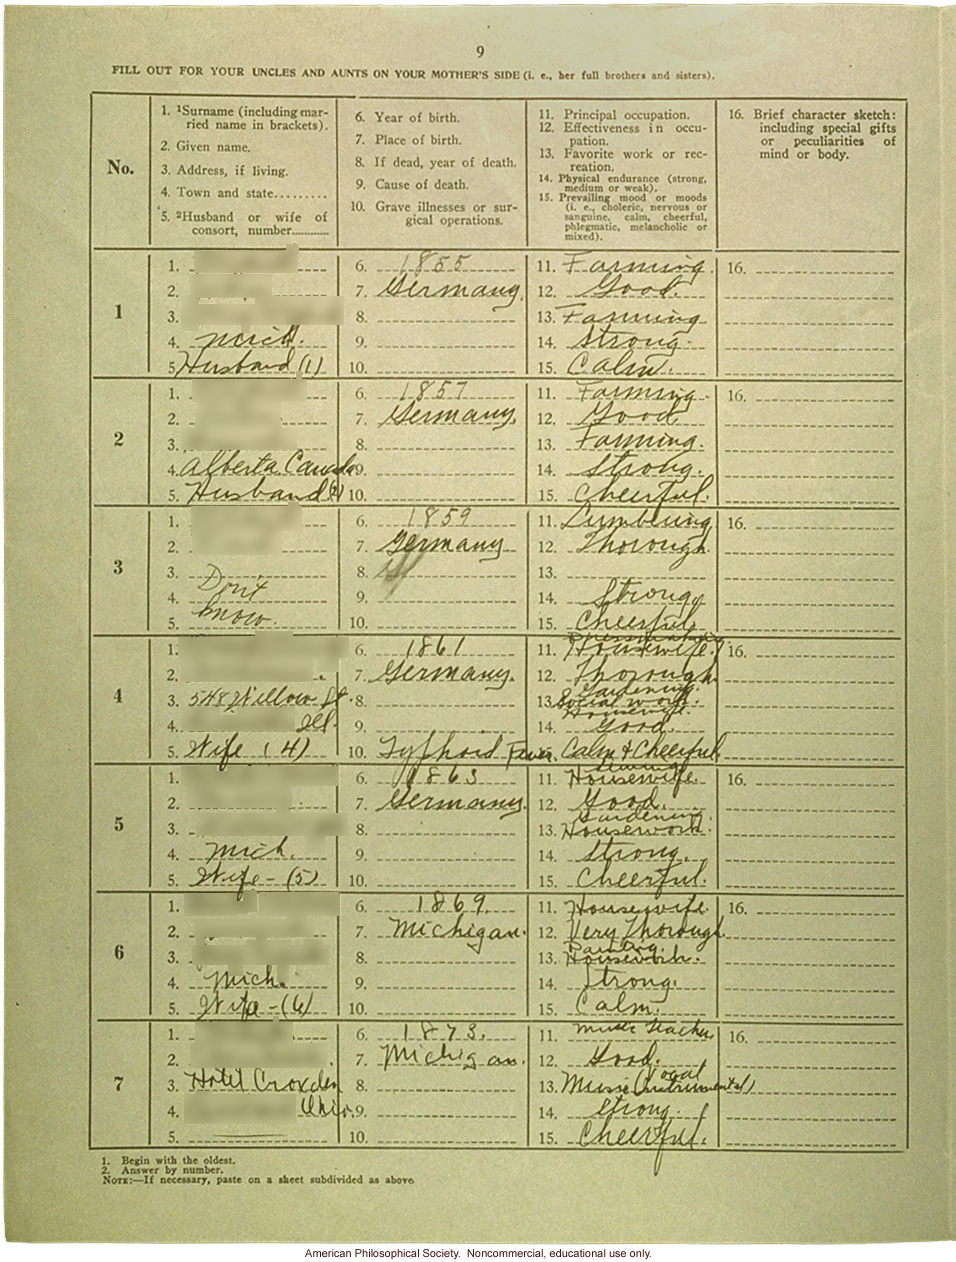 9
FILL OUT FOR YOUR UNCLES AND AUNTS ON YOUR MOTHER'S SIDE (i. e., her full brothers and sisters).
No.
1. ¹Surname (including married name in brackets).
2. Given name.
3. Address, if living.
4. Town and state.........
5. ²Husband or wife of consort, number.........
6. Year of birth.
7. Place of birth.
8. If dead, year of death.
9. Cause of death.
10. Grave illnesses or surgical operations.
11. Principal occupation.
12. Effectiveness in occupation.
13. Favorite work or recreation.
14. Physical endurance (strong, medium or weak).
15. Prevailing mood or moods (i. e., choleric, nervous or sanguine, calm, cheerful, phlegmatic, melancholic or mixed).
16. Brief character sketch: including special gifts or peculiarities of mind or body.
1
1.
2.
3.
4. Mich.
5. Husband (1)
6. 1855
7. Germany
8.
9.
10.
11. Farming.
12. Good.
13. Farming
14. Strong.
15. Calm.
16.
2
1.
2.
3.
4. Alberta Canada
5. Husband (2)
6. 1857
7. Germany.
8.
9.
10.
11. Farming.
12. Good
13. Farming.
14. Strong.
15. Cheerful.
16.
3
1.
2.
3. Don't
4. know.
5.
6. 1859
7. Germany
8.
9.
10.
11. Lumbering
12. Thorough.
13.
14. Strong.
15. Cheerful
16.
4
1.
2.
3. 548 Willow St.
4. Ill.
5. Wife (4)
6. 1861
7. Germany.
8.
9.
10. Typhoid Fever.
11. Dressmaking Housewife.
12. Thorough.
13. Gardening. Social work. Housewife.
14. Good.
15. Calm & Cheerful
16.
5
1.
2.
3.
4. Mich.
5. Wife - (5)
6. 1863
7. Germany.
8.
9.
10.
11. Sewing Housewife.
12. Good.
13. Gardening. Housework.
14. Strong.
15. Cheerful.
16.
6
1.
2.
3.
4. Mich.
5. Wife - (6)
6. 1869.
7. Michigan.
8.
9.
10.
11. Housewife.
12. Very Thorough
13. Painting. Housework.
14. Strong.
15. Calm.
16.
7
1.
2.
3. Hotel
4. Ohio.
5.
6. 1873.
7. Michigan.
8.
9.
10.
11. Music Teacher
12. Good.
13. Music (Vocal Instrumental)
14. Strong.
15. Cheerful.
16.
1. Begin with the oldest.
2. Answer by number.
NOTE:—If necessary, paste on a sheet subdivided as above.
American Philosophical Society. Noncommercial, educational use only.